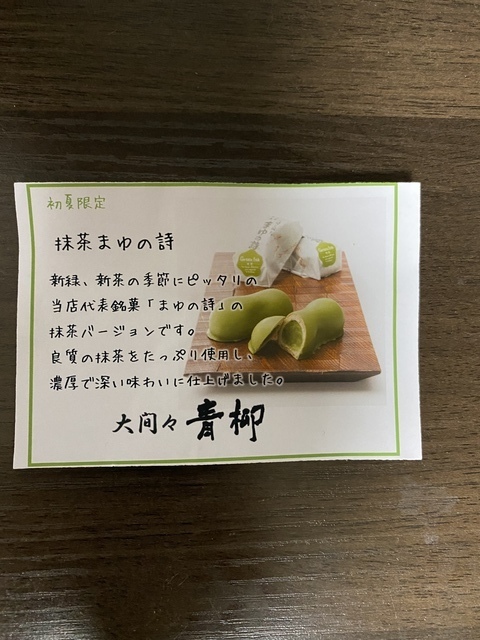 初夏限定
抹茶まゆの詩
新緑、新茶の季節にピッタリの
当店代表銘菓「まゆの詩」の
抹茶バージョンです。
良質の抹茶をたっぷり使用し、
濃厚で深い味わいに仕上げました。
大間々 青柳
まゆの詩